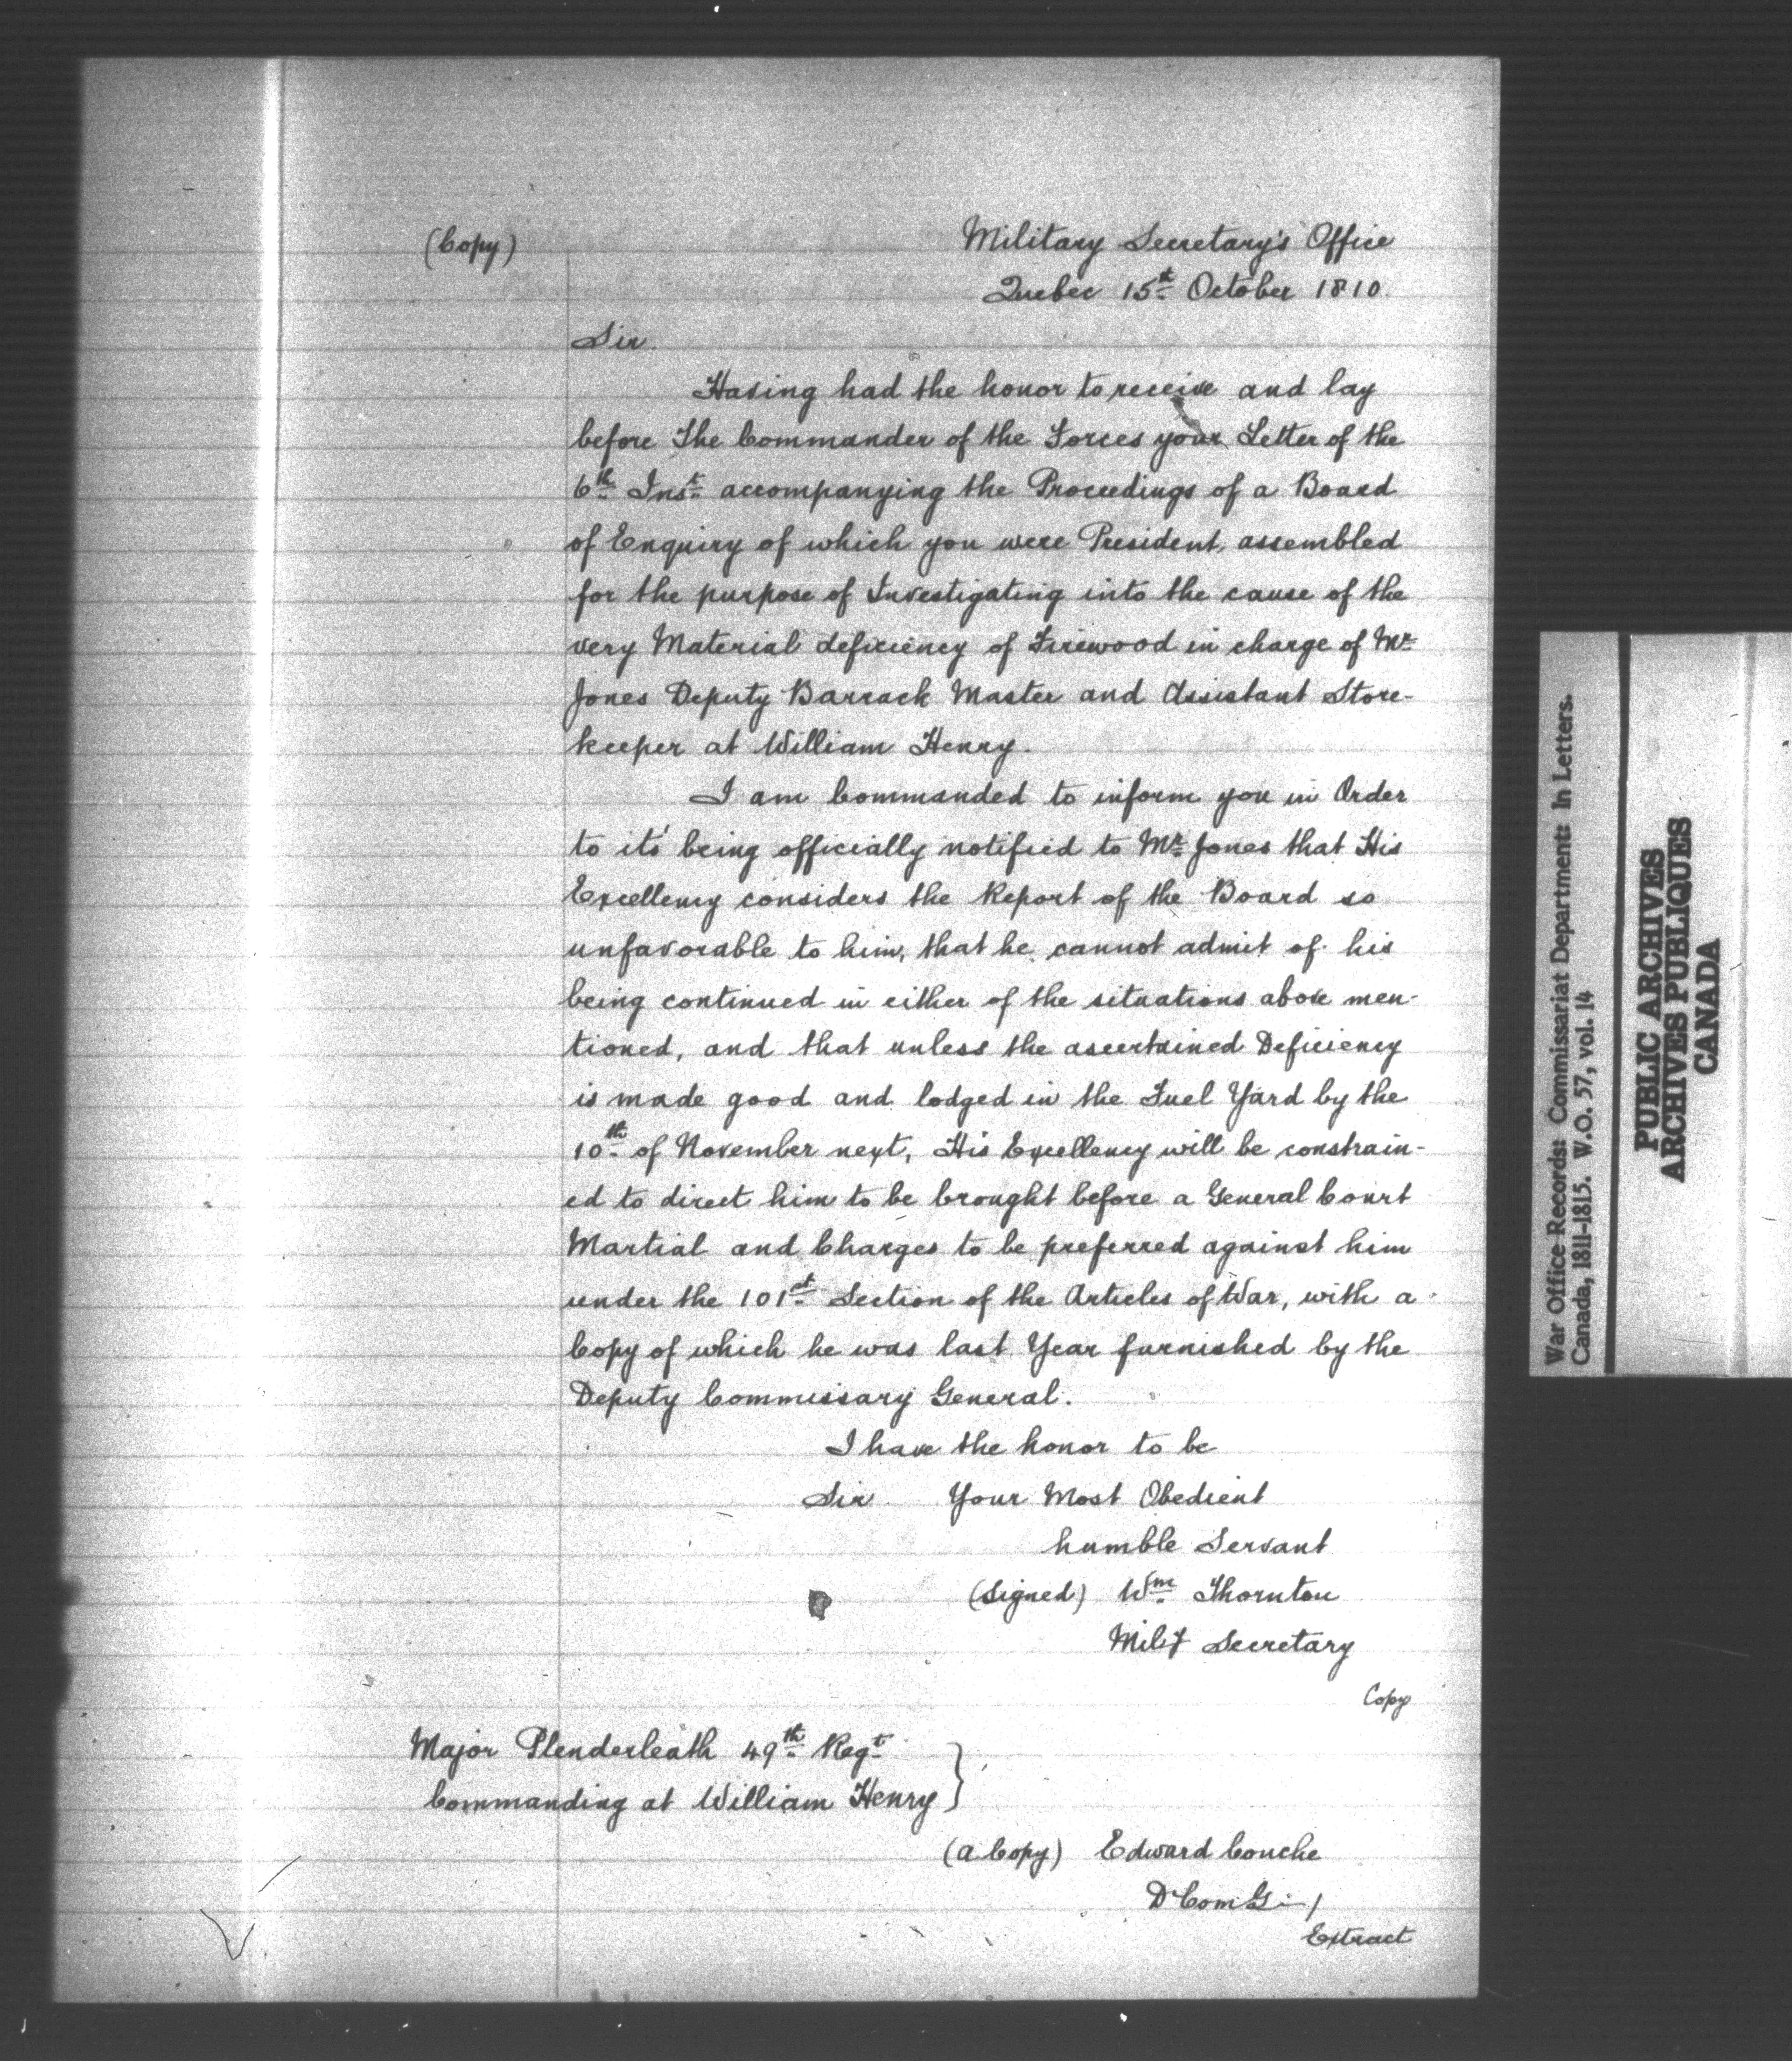 (Copy)
Military Secretary's Office
Quebec 15th October 1810.
Sir.
Having had the honor to receive and lay
before The Commander of the Forces your Letter of the
6th Inst accompanying the Proceedings of a Board
of Enquiry of which you were President, assembled
for the purpose of Investigating into the cause of the
very Material deficiency of Firewood in charge of Mr
Jones Deputy Barrack Master and Assistant Store-
keeper at William Henry.
I am Commanded to inform you in Order
to its' being officially notified to Mr Jones that His
Excellency considers the Report of the Board so
unfavorable to him, that he cannot admit of his
being continued in either of the situations above men-
tioned, and that unless the ascertained Deficiency
is made good and lodged in the Fuel Yard by the
10th of November next, His Excellency will be constrain-
ed to direct him to be brought before a General Court
Martial and Charges to be preferred against him
under the 101st Section of the Articles of War, with a
Copy of which he was last Year furnished by the
Deputy Commissary General.
I have the honor to be
Sir Your Most Obedient
humble Servant
(Signed) Wm Thornton
Mily Secretary
Copy
Major Plenderleath 49th Regt
Commanding at William Henry
(a Copy) Edward Couche
D Com G
Extract
War Office Records: Commissariat Department: In Letters.
Canada, 1811-1815. W.O. 57, vol. 14
PUBLIC ARCHIVES
ARCHIVES PUBLIQUES
CANADA